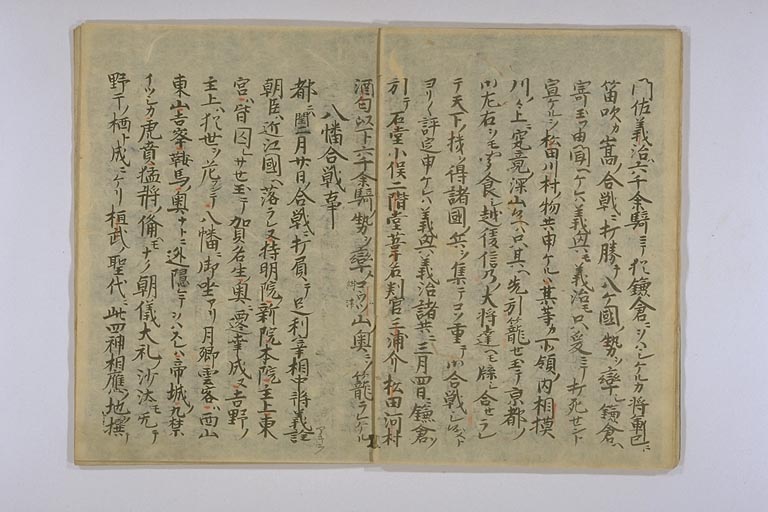 門佐義治六千余騎ニテ鎌倉ニ 将軍已ニ
笛吹カ嵩ノ合戦ニ打勝テ八ケ國ノ勢ヲ率シ鎌倉ヘ
寄玉フ由聞ヘケレハ義興モ義治モ只爰ニテ打死セント
宣ケルヲ松田川村ノ物共申ケルハ某等カ所領ノ内相模
川ノ上ニ究竟ノ深山 候ヘハ只其ヘ先引籠セ玉テ京都ノ
御左右ヲモ 食シ越後信乃ノ大將達ヘモ牒シ合セラレ
テ天下ノ機ヲ得諸國ノ兵ヲ集テコソ重テ御合戦モ
ヨリヨリ評定申ケレハ義興義治諸共ニ三月四日鎌倉ヲ
引テ石堂小俣二階堂葦名判官三浦介松田河村
酒匂以下六千余騎ノ勢ヲ率シ 山ノ奥ニソ籠ラレケル
八幡合戦事
都ニハ閏二月廿日ノ合戦ニ打負テ足利宰相中將義詮
朝臣ハ近江國ヘ落ラレ 持明院ノ新院本院主上東
宮ハ皆囚レサセ玉テ賀名生ノ奥ヘ遷幸成ヌ吉野ノ
主上ハ 世ヲ 八幡ニ御坐アリ月郷雲客ハ西山
東山吉峯鞍馬ノ奥ナトニ迯隠レテ ハ帝城ノ九禁
イツシカ虎賁猛將ノ備モナク朝儀大礼ノ沙汰モ
野干ノ栖ト成ニケリ桓武ノ聖代此四神相應ノ地ヲ撰